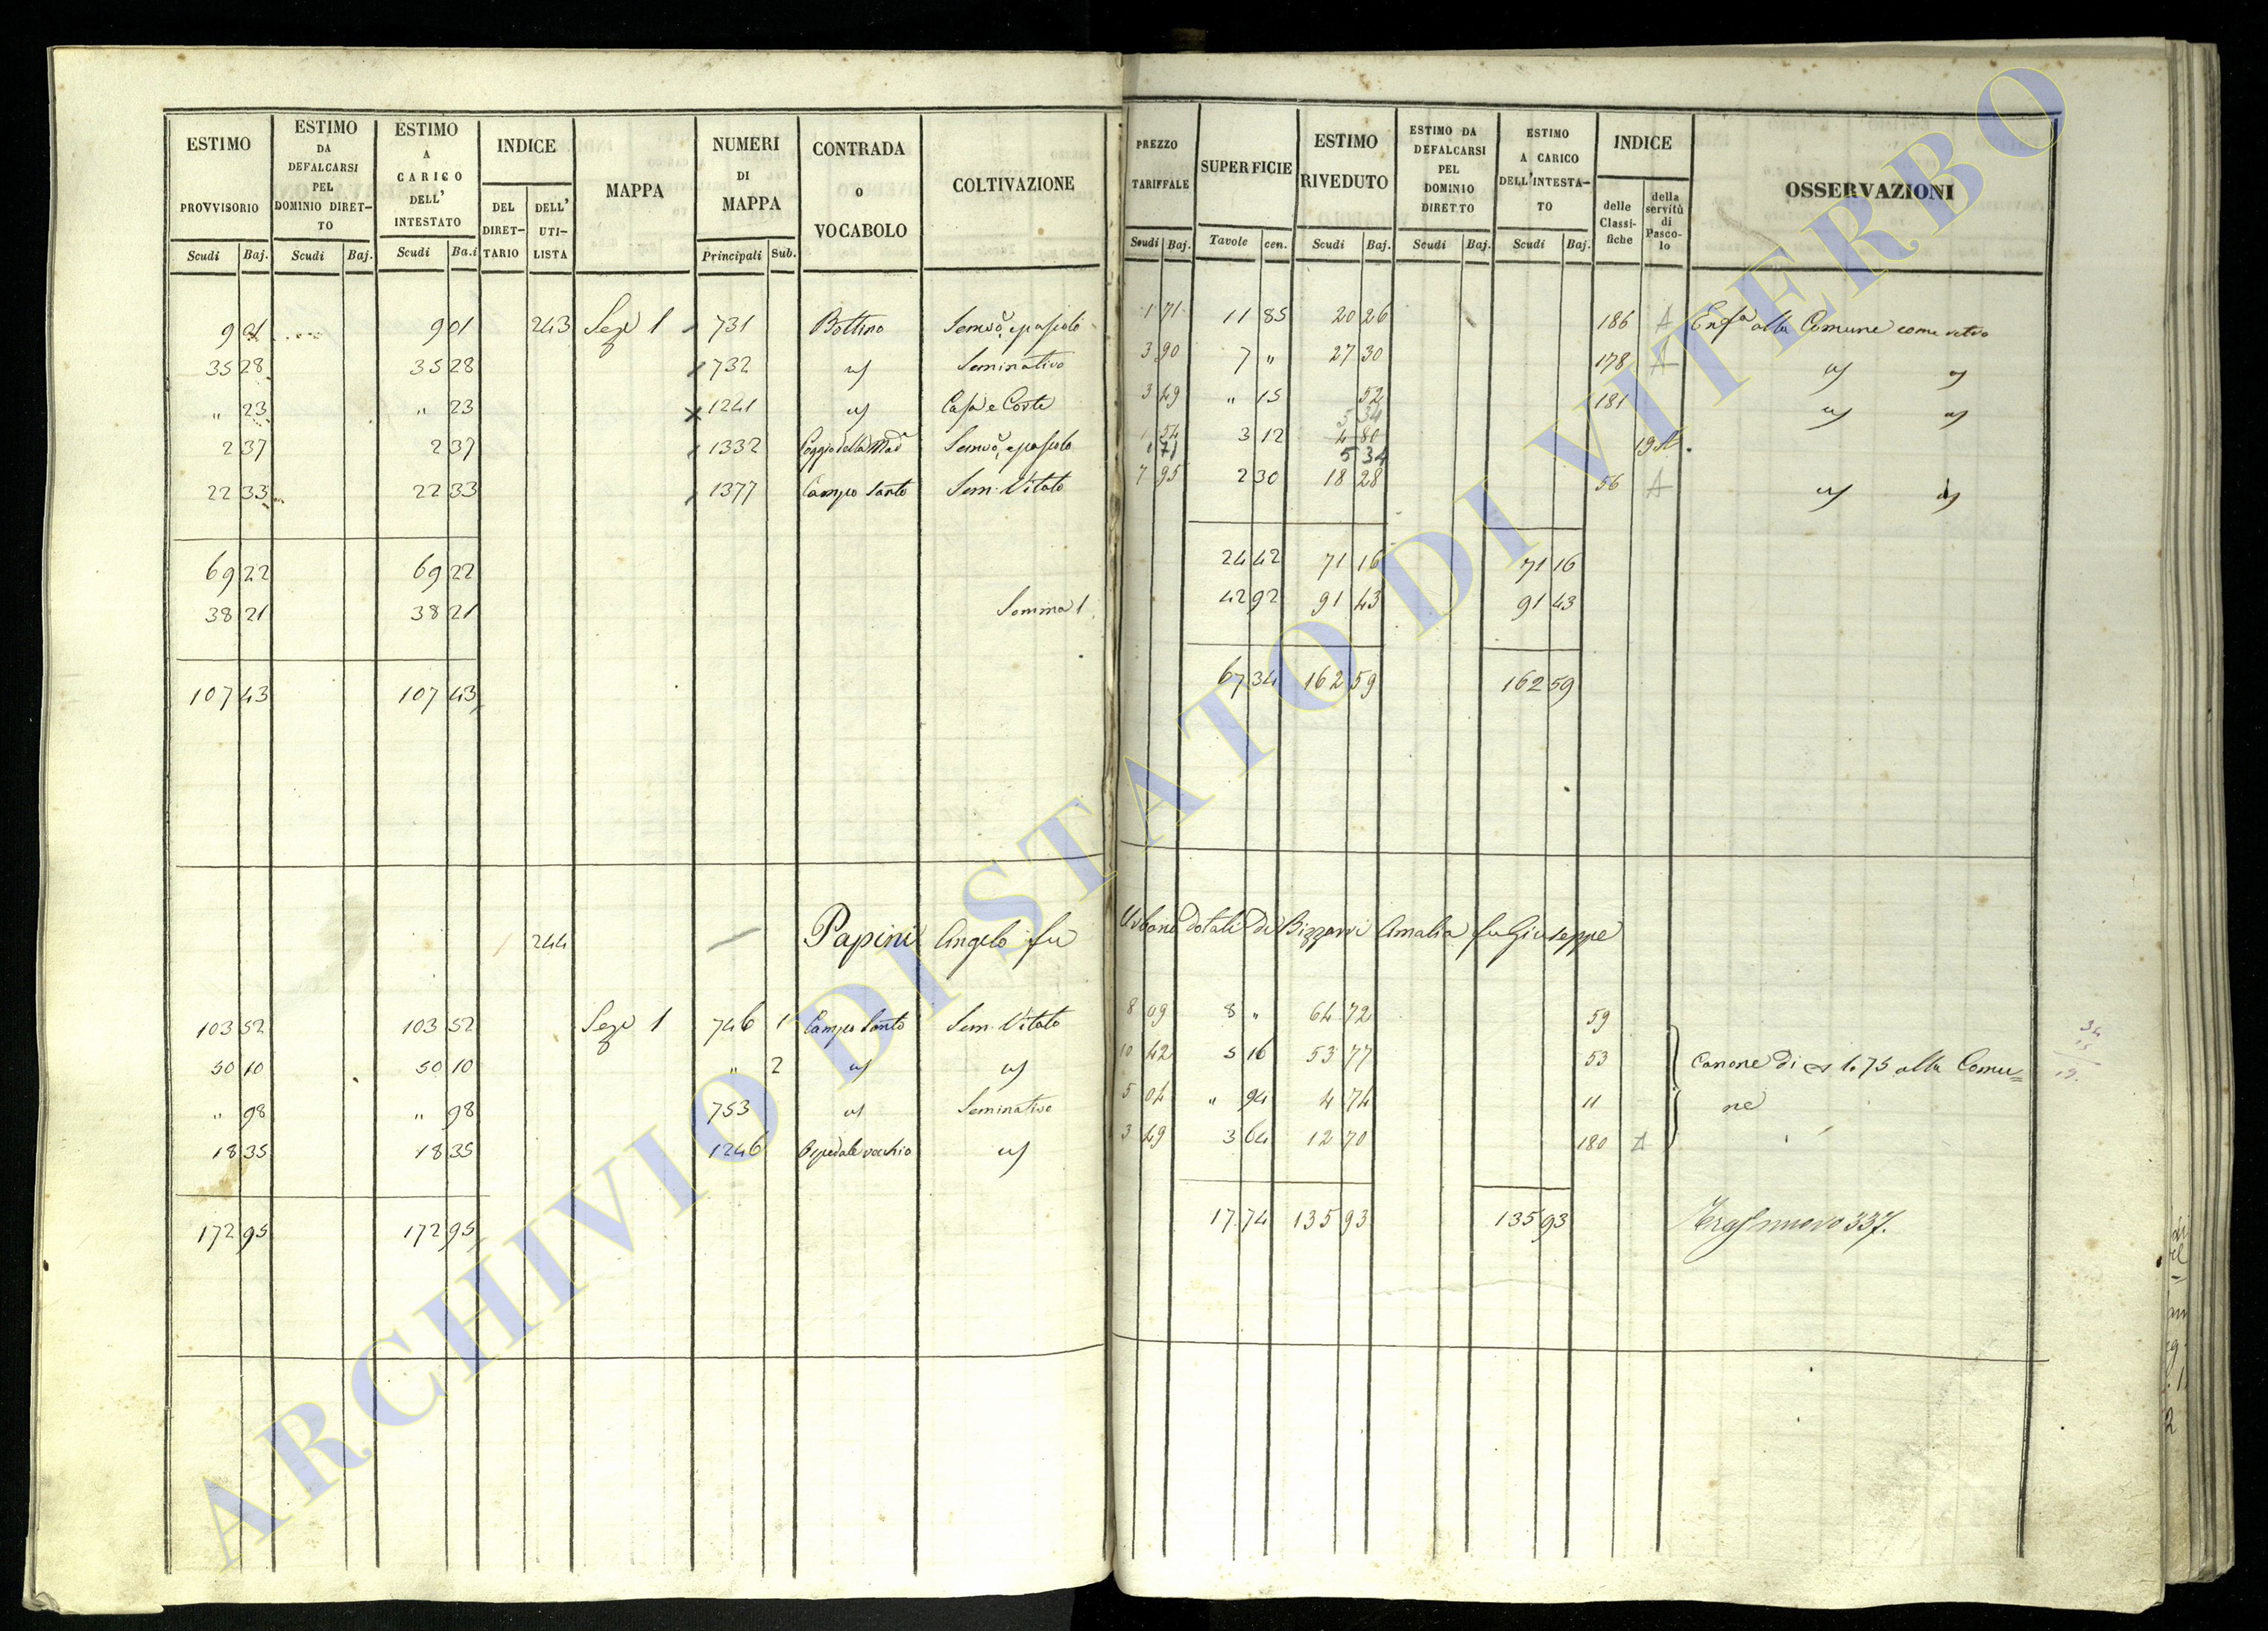 ESTIMO PROVVISORIO Scudi Baj.
ESTIMO DA DEFALCARSI PEL DOMINIO DIRET-TO Scudi Baj.
ESTIMO A CARICO DELL' INTESTATO Scudi Ba.i
INDICE DEL DIRET-TARIO DELL' UTI-LISTA
MAPPA
NUMERI DI MAPPA Principali Sub.
CONTRADA o VOCABOLO
COLTIVAZIONE
PREZZO TARIFFALE Scudi Baj.
SUPERFICIE Tavole cen.
ESTIMO RIVEDUTO Scudi Baj.
ESTIMO DA DEFALCARSI PEL DOMINIO DIRETTO Scudi Baj.
ESTIMO A CARICO DELL'INTESTA-TO Scudi Baj.
INDICE delle Classi-fiche della servitù di Pasco-lo
OSSERVAZIONI
9 01 9 01 243 Sez.e 1 731 Bottino Semvo, e pascolo 1 71 11 85 20 26 186 A Enfa alla Comune come retro
35 28 35 28 732 id Seminativo 3 90 7 " 27 30 178 A id id
" 23 " 23 1241 id Casa e Corte 3 49 " 15 52 181 id id
5 34
2 37 2 37 1332 Poggio della Mada Semvo, e pascolo 1 54 3 12 4 80 19
1 71 5 34
22 33 22 33 1377 Campo Santo Sem. Vitato 7 95 2 30 18 28 56 A id id
69 22 69 22 24 42 71 16 71 16
38 21 38 21 Somma 1 42 92 91 43 91 43
107 43 107 43 67 34 162 59 162 59
244 Papini Angelo fu Urbano dotale di Bizzarri Amalia fu Giuseppe
103 52 103 52 Sez.e 1 746 1 Campo Santo Sem. Vitato 8 09 8 " 64 72 59
50 10 50 10 " 2 id id 10 42 5 16 53 77 53 Canone di 1.75 alla Comu=
" 98 " 98 753 id Seminativo 5 04 " 94 4 74 11 ne
18 35 18 35 1246 Ospedale vecchio id 3 49 3 64 12 70 180 A
172 95 172 95 17 74 135 93 135 93 nuovo 337.
ARCHIVIO DI STATO DI VITERBO